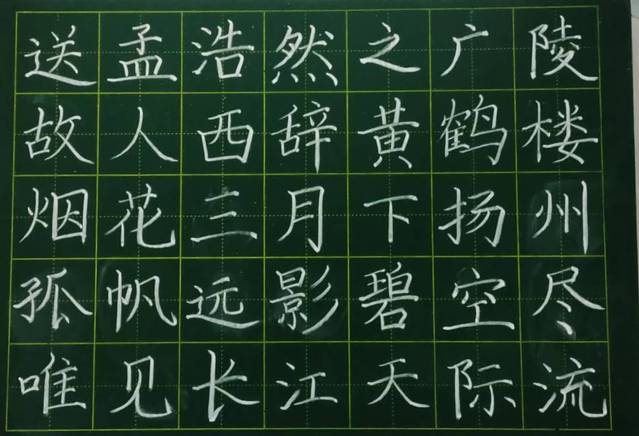 送孟浩然之广陵
故人西辞黄鹤楼
烟花三月下扬州
孤帆远影碧空尽
唯见长江天际流